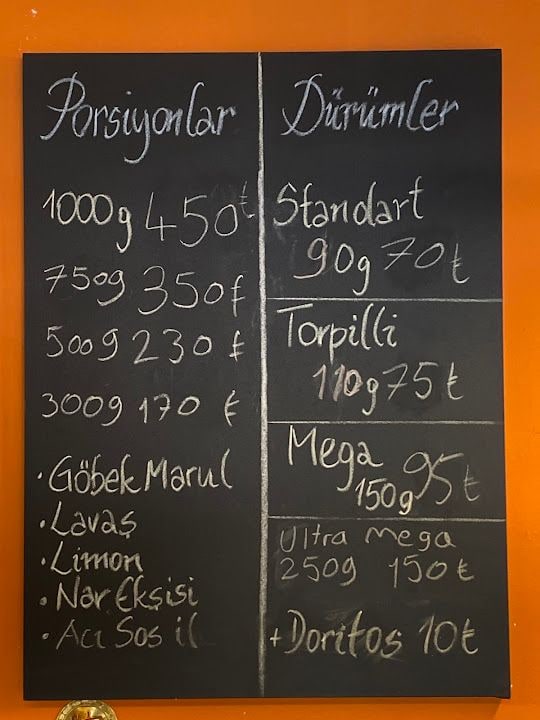 Porsiyonlar
1000g 450₺
750g 350₺
500g 230 ₺
300g 170 ₺
• Göbek Marul
• Lavaş
• Limon
• Nar Ekşisi
• Acı Sos il
Dürümler
Standart
90g 70₺
Torpilli
110g 75₺
Mega
150g 95₺
Ultra mega
250g 150₺
+Doritos 10₺